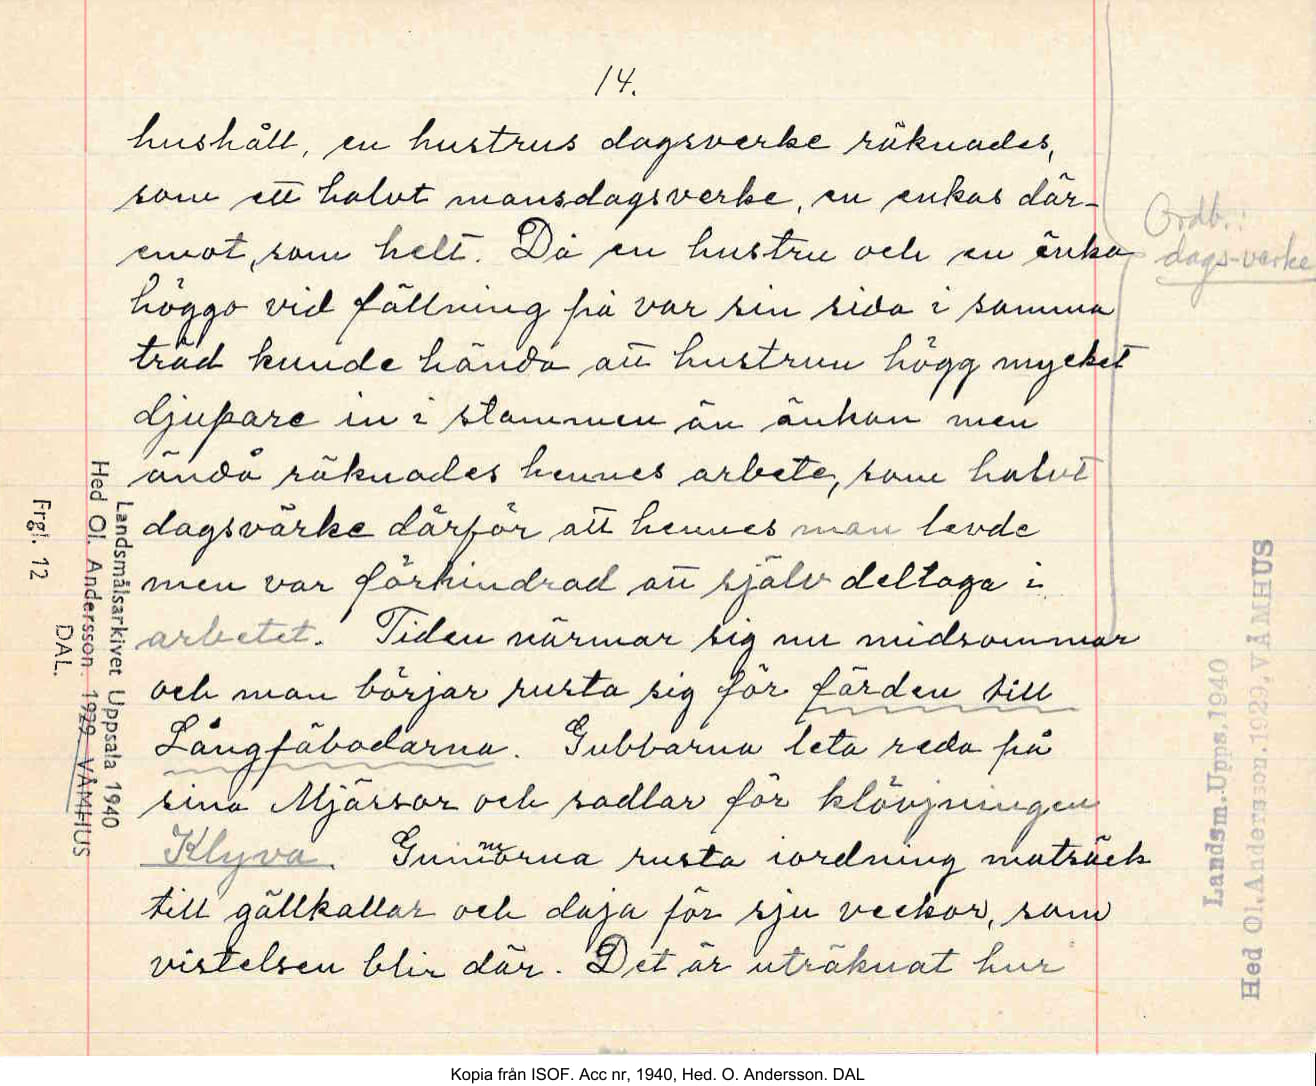 14.
hushåll, en hustrus dagsverke räknades,
som ett halvt mansdagsverke, en enkas där-
emot, som helt. Då en hustru och en änka
höggo vid fällning på var sin sida i samma
träd kunde hända att hustrun högg mycket
djupare in i stammen än änkan men
ändå räknades hennes arbete, som halvt
dagsvärke därför att hennes man levde
men var förhindrad att själv deltaga i
arbetet. Tiden närmar sig nu midsommar
och man börjar rusta sig för färden till
Långfäbodarna. Gubbarna leta reda på
sina Mjärsor och sadlar för klövjningen
Klyva. rusta iordning matsäck
till gällkallar och daja för sju veckor, som
vistelsen blir där. Det är uträknat hur
Ordb.:
dags-verke
Landsmålsarkivet Uppsala 1940
Hed Ol. Andersson. 1929 VÅMHUS
DAL.
Frgl. 12
Landsm.Upps.1940
Hed Ol.Andersson.1929,VÅMHUS
Kopia från ISOF. Acc nr, 1940, Hed. O. Andersson. DAL